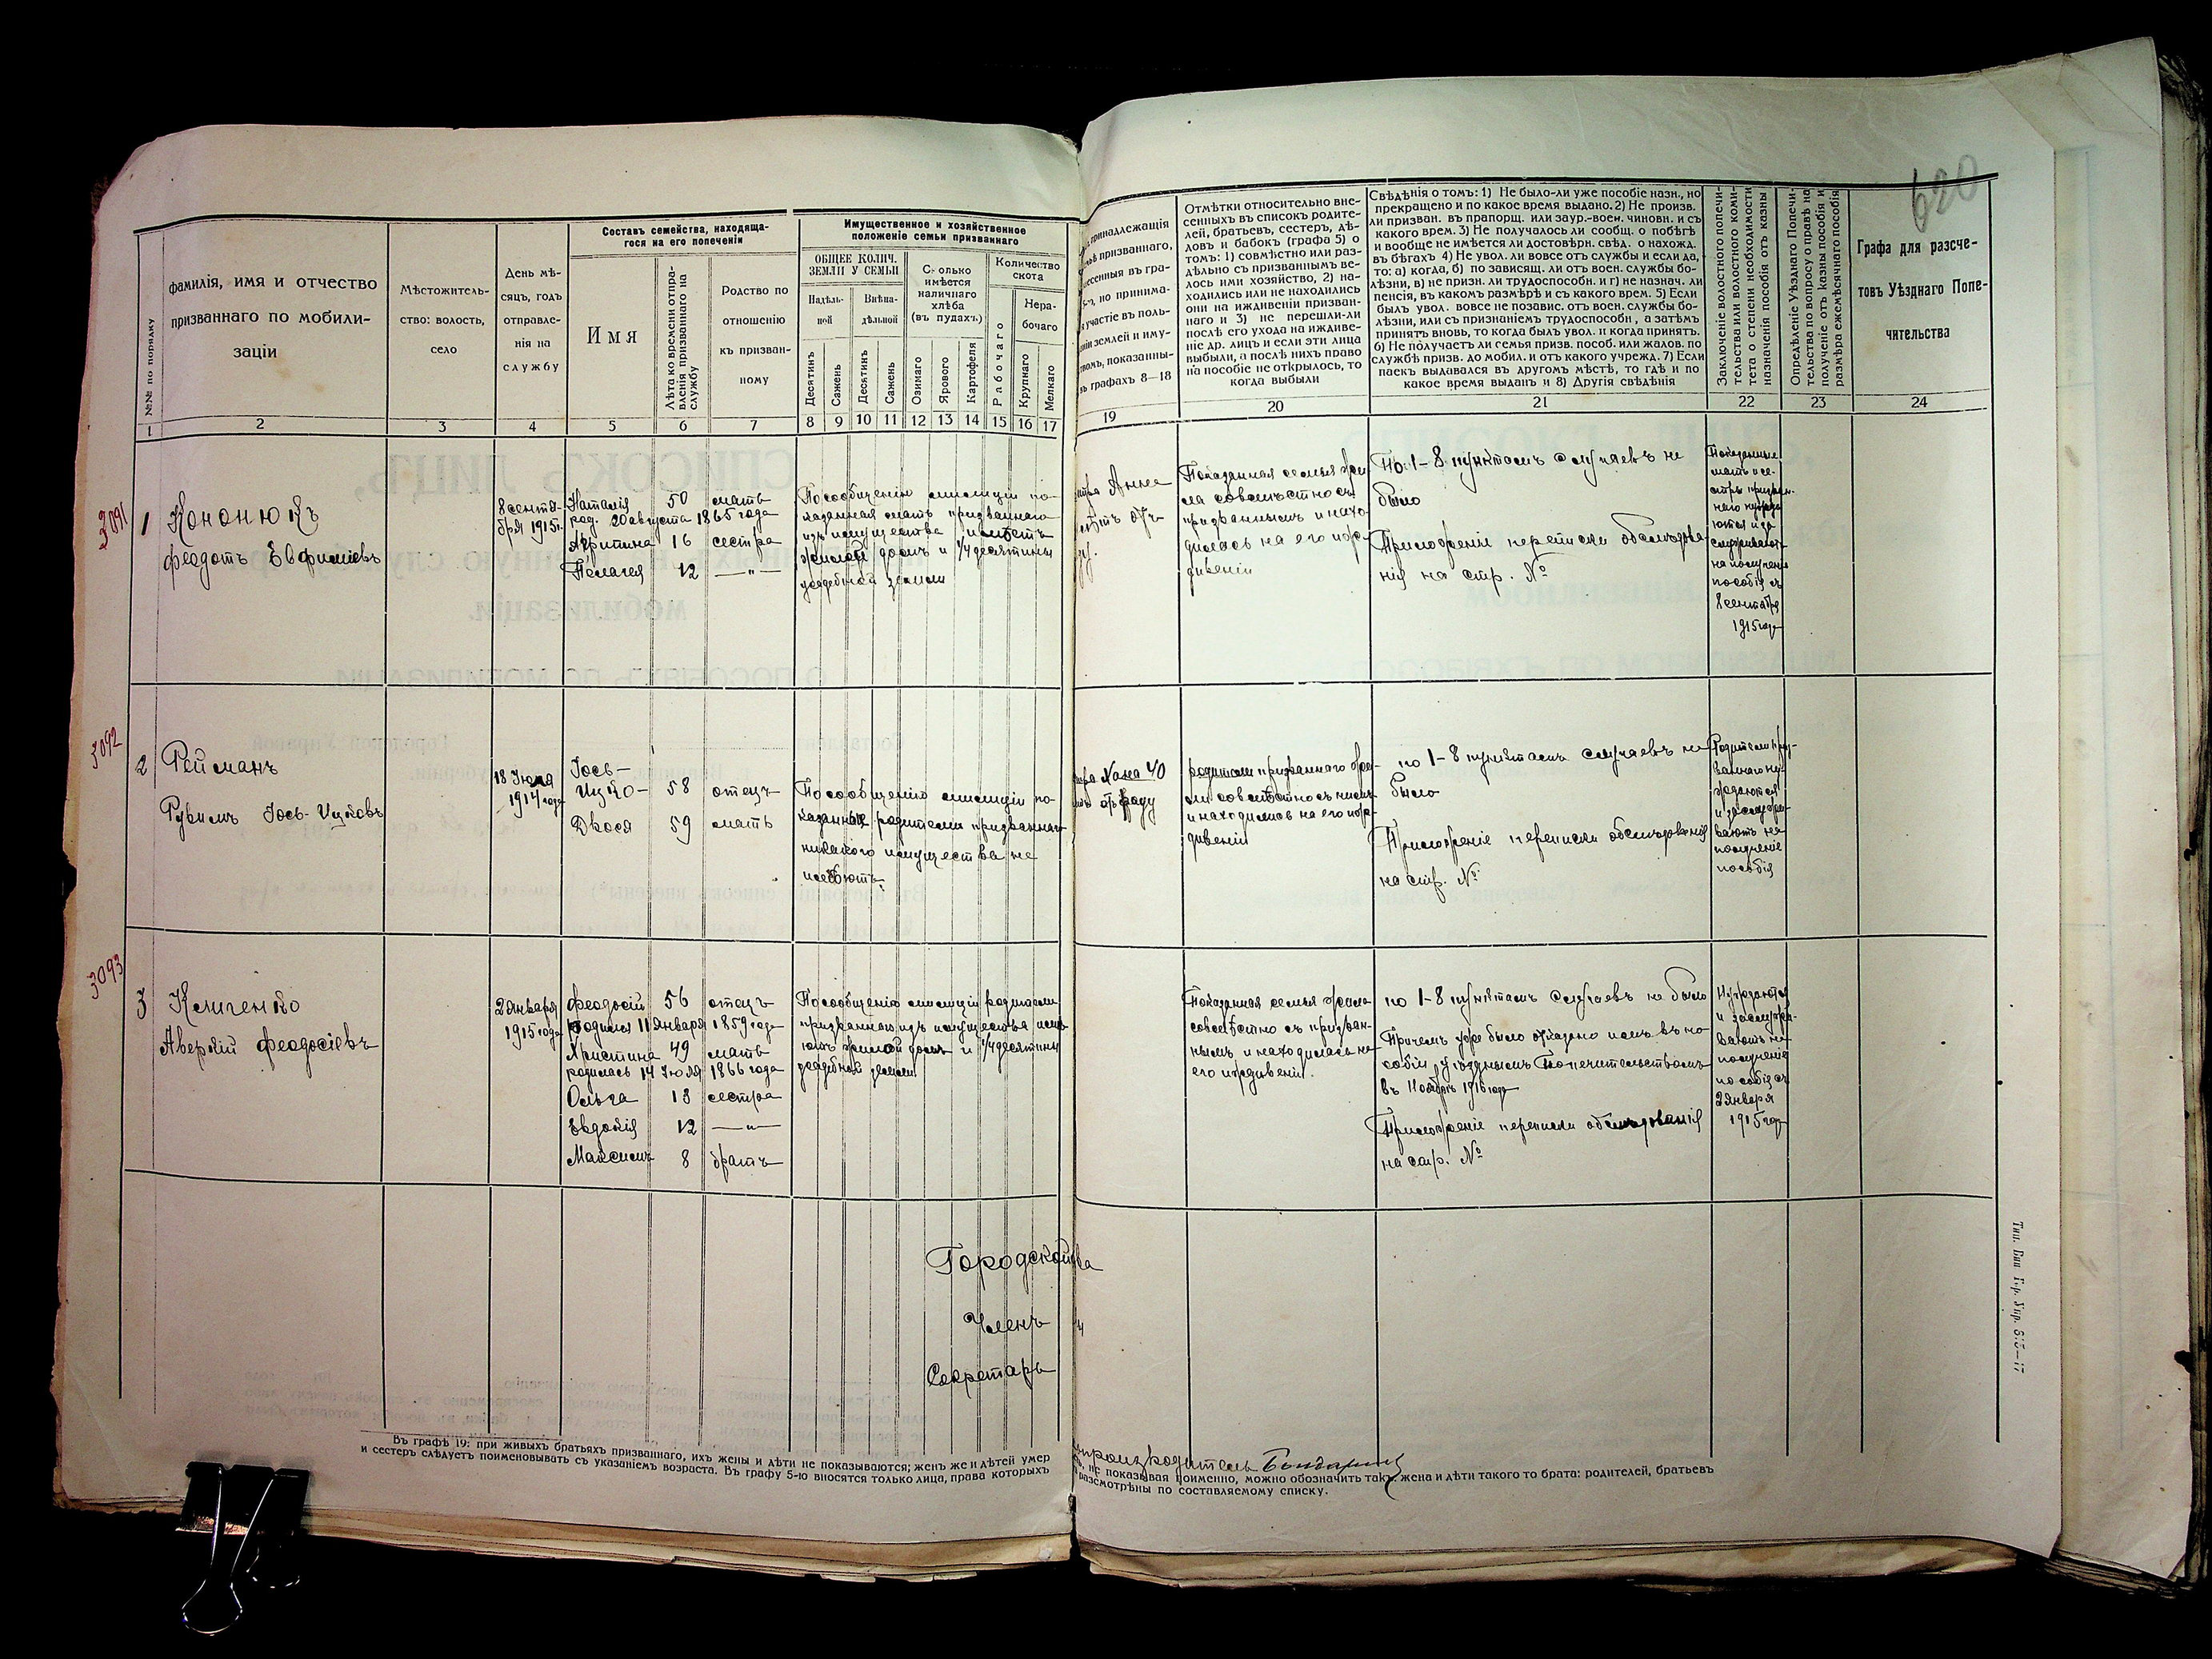 620
№№ по порядку
фамилія, имя и отчество
призваннаго по мобили-
заціи
Мѣстожитель-
ство: волость,
село
День мѣ-
сяцъ, годъ
отправле-
нія на
службу
Составъ семейства, находяща-
гося на его попеченіи
Имя
Лѣта ко времени отпра-
вленія призваннаго на
службу
Родство по
отношенію
къ призван-
ному
Имущественное и хозяйственное
положеніе семьи призваннаго
ОБЩЕЕ КОЛИЧ.
ЗЕМЛИ У СЕМЬИ
Надѣль-
ной
Внѣна-
дѣльной
Десятинъ
Сажень
Десятинъ
Сажень
Сколько
имѣется
наличнаго
хлѣба
(въ пудахъ)
Озимаго
Ярового
Картофеля
Количество
скота
Рабочаго
Нера-
бочаго
Крупнаго
Мелкаго
1 2 3 4 5 6 7 8 9 10 11 12 13 14 15 16 17
3091
1 Кононюкъ
Феодотъ Евфиміевъ
8 сентя-
бря 1915 г.
Наталія 50 мать
род. 20 августа 1865 года
Агрипина 16 сестра
Пелагея 12 —"—
По сообщенію милиціи по-
казанная мать призваннаго
изъ имущества имѣетъ
жилой домъ и 1/4 десятины
усадебной земли
3092
2 Рейманъ
Рувимъ Іось-Ицковъ
18 Іюля
1914 года
Іось-
Ицко- 58 отецъ
Двося 59 мать
По сообщенію милиціи по-
казанные родители призваннаго
никакого имущества не
имѣютъ.
3093
3 Клименко
Аверкій Феодосіевъ
2 января
1915 года
Феодосій 56 отецъ
родился 11 января 1859 года
Христина 49 мать
родилась 14 Іюля 1866 года
Ольга 13 сестра
Евдокія 12 —"—
Максимъ 8 братъ
По сообщенію милиціи родители
призваннаго изъ имущества имѣ-
ютъ жилой домъ и 1/4 десятины
усадебной земли
Городской
Членъ
Секретарь
Въ графѣ 19: при живыхъ братьяхъ призваннаго, ихъ жены и дѣти не показываются; женъ же и дѣтей умер
и сестеръ слѣдуетъ поименовывать съ указаніемъ возраста. Въ графу 5-ю вносятся только лица, права которыхъ
принадлежащія
призваннаго,
несенныя въ гра-
но принима-
участіе въ поль-
землей и иму-
показанны-
графахъ 8—18
Отмѣтки относительно вне-
сенныхъ въ списокъ родите-
лей, братьевъ, сестеръ, дѣ-
довъ и бабокъ (графа 5) о
томъ: 1) совмѣстно или раз-
дѣльно съ призваннымъ ве-
лось ими хозяйство, 2) на-
ходились или не находились
они на иждивеніи призван-
наго и 3) не перешли-ли
послѣ его ухода на иждиве-
ніе др. лицъ и если эти лица
выбыли, а послѣ нихъ право
на пособіе не открылось, то
когда выбыли
Свѣдѣнія о томъ: 1) Не было-ли уже пособіе назн., но
прекращено и по какое время выдано. 2) Не произв.
ли призван. въ прапорщ. или заур.-воен. чиновн. и съ
какого врем. 3) Не получалось ли сообщ. о побѣгѣ
и вообще не имѣется ли достовѣрн. свѣд. о нахожд.
въ бѣгахъ 4) Не увол. ли вовсе отъ службы и если да,
то: а) когда, б) по зависящ. ли отъ воен. службы бо-
лѣзни, в) не призн. ли трудоспособн. и г) не назнач. ли
пенсія, въ какомъ размѣрѣ и съ какого врем. 5) Если
былъ увол. вовсе не позавис. отъ воен. службы бо-
лѣзни, или съ признаніемъ трудоспособн, а затѣмъ
принятъ вновь, то когда былъ увол. и когда принятъ.
6) Не получаетъ ли семья призв. пособ. или жалов. по
службѣ призв. до мобил. и отъ какого учрежд. 7) Если
паекъ выдавался въ другомъ мѣстѣ, то гдѣ и по
какое время выданъ и 8) Другія свѣдѣнія
Заключеніе волостного попечи-
тельства или волостного коми-
тета о степени необходимости
назначенія пособія отъ казны
Опредѣленіе Уѣзднаго Попечи-
тельства по вопросу о правѣ на
полученіе отъ казны пособія и
размѣра ежемѣсячнаго пособія
Графа для разсче-
товъ Уѣзднаго Попе-
чительства
19 20 21 22 23 24
Анна
Показанная семья жи-
ла совмѣстно съ
призваннымъ и нахо-
дилась на его иж-
дивеніи
По 1-8 пунктамъ случаевъ не
было
Приложеніе переписки обслѣдова-
нія на стр. №
Показанные
мать и се-
стры призван-
наго нужда-
ются и за-
служиваютъ
на полученіе
пособія съ
8 сентября
1915 года
Хана 40
родители призваннаго жи-
ли совмѣстно съ нимъ
и находились на его иж-
дивеніи
по 1-8 пунктамъ случаевъ не
было
Приложеніе переписки обслѣдованія
на стр. №
Родители приз-
ваннаго ну-
ждаются
и заслужи-
ваютъ на
полученіе
пособія
Показанная семья жила
совмѣстно съ призван-
нымъ и находилась на
его иждивеніи.
по 1-8 пунктамъ случаевъ не было
Причемъ уже было отказано имъ въ по-
собіи Уѣзднымъ Попечительствомъ
въ 1916 году
Приложеніе переписки обслѣдованія
на стр. №
Нуждаются
и заслужи-
ваютъ на
полученіе
пособія съ
2 января
1915 года
показывая поименно, можно обозначить такъ: жена и дѣти такого то брата: родителей, братьевъ
разсмотрѣны по составляемому списку.